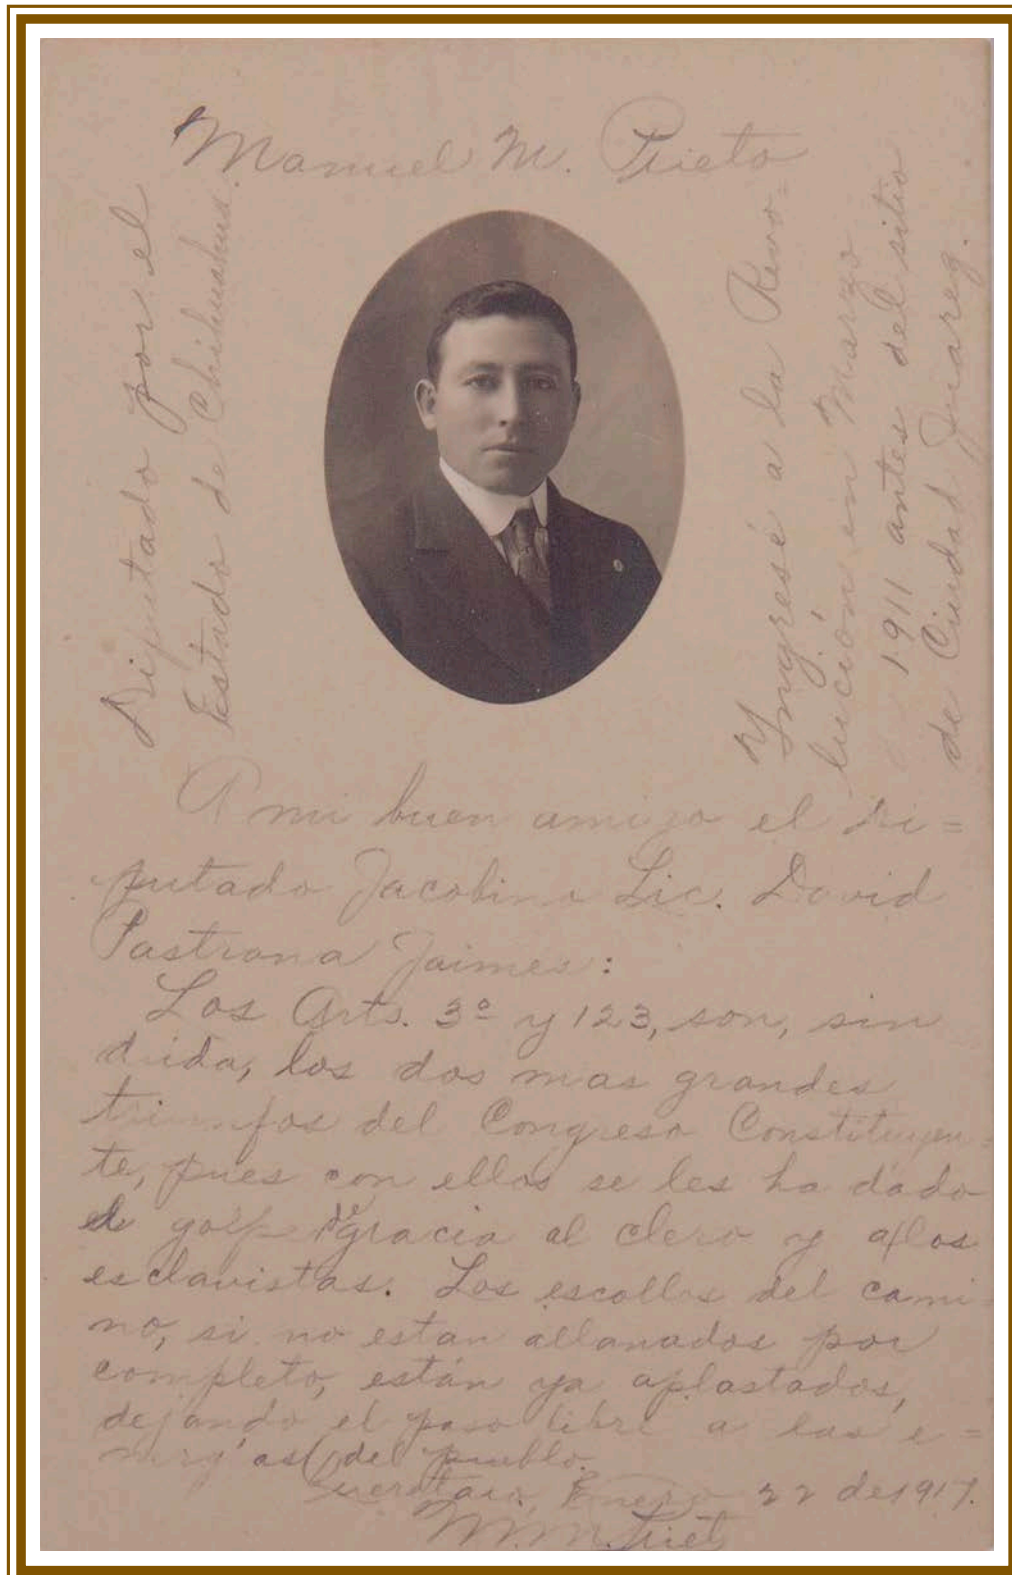 Manuel M. Prieto
Diputado por el
Estado de Chihuahua.
Ingresé a la Revo-
lución en Marzo
de 1911 antes del sitio
de Ciudad Juarez.
A mi buen amigo el Di=
putado Jacobino Lic. David
Pastrana Jaimes:
Los Arts. 3º y 123, son, sin
duda, los dos mas grandes
triunfos del Congreso Constituyen=
te, pues con ellos se les ha dado
el golpe de gracia al clero y a los
esclavistas. Los escollos del cami
no, si no estan allanados por
completo, están ya aplastados,
dejando el paso libre a las e=
nergías del pueblo.
Querétaro, Enero 22 de 1917.
M. M. Prieto